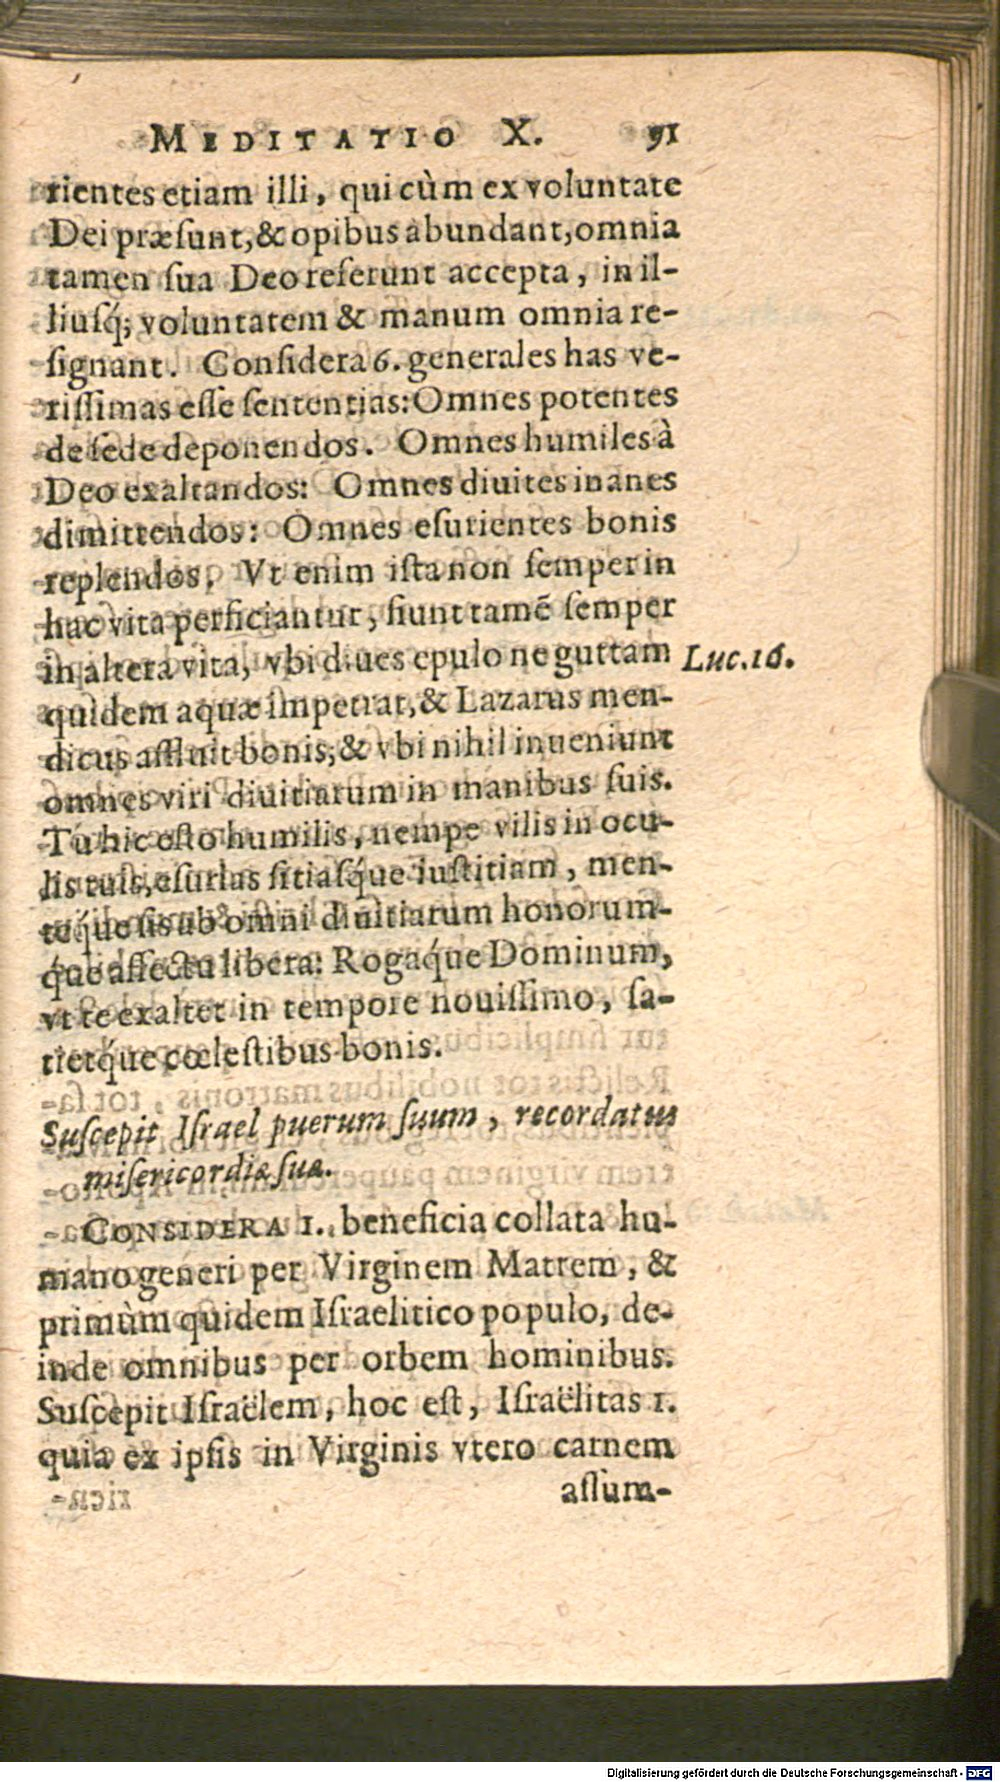 MEDITATIO X. 91
rientes etiam illi, qui cùm ex voluntate
Dei præſunt, & opibus abundant, omnia
tamen ſua Deo referunt accepta, in il-
liuſq́; voluntatem & manum omnia re-
ſignant. Conſidera 6. generales has ve-
riſſimas eſſe ſententias: Omnes potentes
de ſede deponendos. Omnes humiles à
Deo exaltandos: Omnes diuites inanes
dimittendos: Omnes eſurientes bonis
replendos. Vt enim iſta non ſemper in
hac vita perficiantur, fiunt tamē ſemper
in altera vita, vbi diues epulo ne guttam
Luc. 16.
quidem aquæ impetrat, & Lazarus men-
dicus affluit bonis, & vbi nihil inueniunt
omnes viri diuitiarum in manibus ſuis.
Tu hic eſto humilis, nempe vilis in ocu-
lis tuis, eſurias ſitiaſq́ue iuſtitiam, men-
teq́ue ſis ab omni diuitiarum honorum-
q́ue affectu libera: Rogaq́ue Dominum,
vt te exaltet in tempore nouiſſimo, ſa-
tietq́ue cœleſtibus bonis.
Suſcepit Iſrael puerum ſuum, recordatus
miſericordiæ ſuæ.
CONSIDERA 1. beneficia collata hu-
mano generi per Virginem Matrem, &
primùm quidem Iſraelitico populo, de-
inde omnibus per orbem hominibus.
Suſcepit Iſraëlem, hoc eſt, Iſraëlitas 1.
quia ex ipſis in Virginis vtero carnem
aſſum-
Digitalisierung gefördert durch die Deutsche Forschungsgemeinschaft - DFG